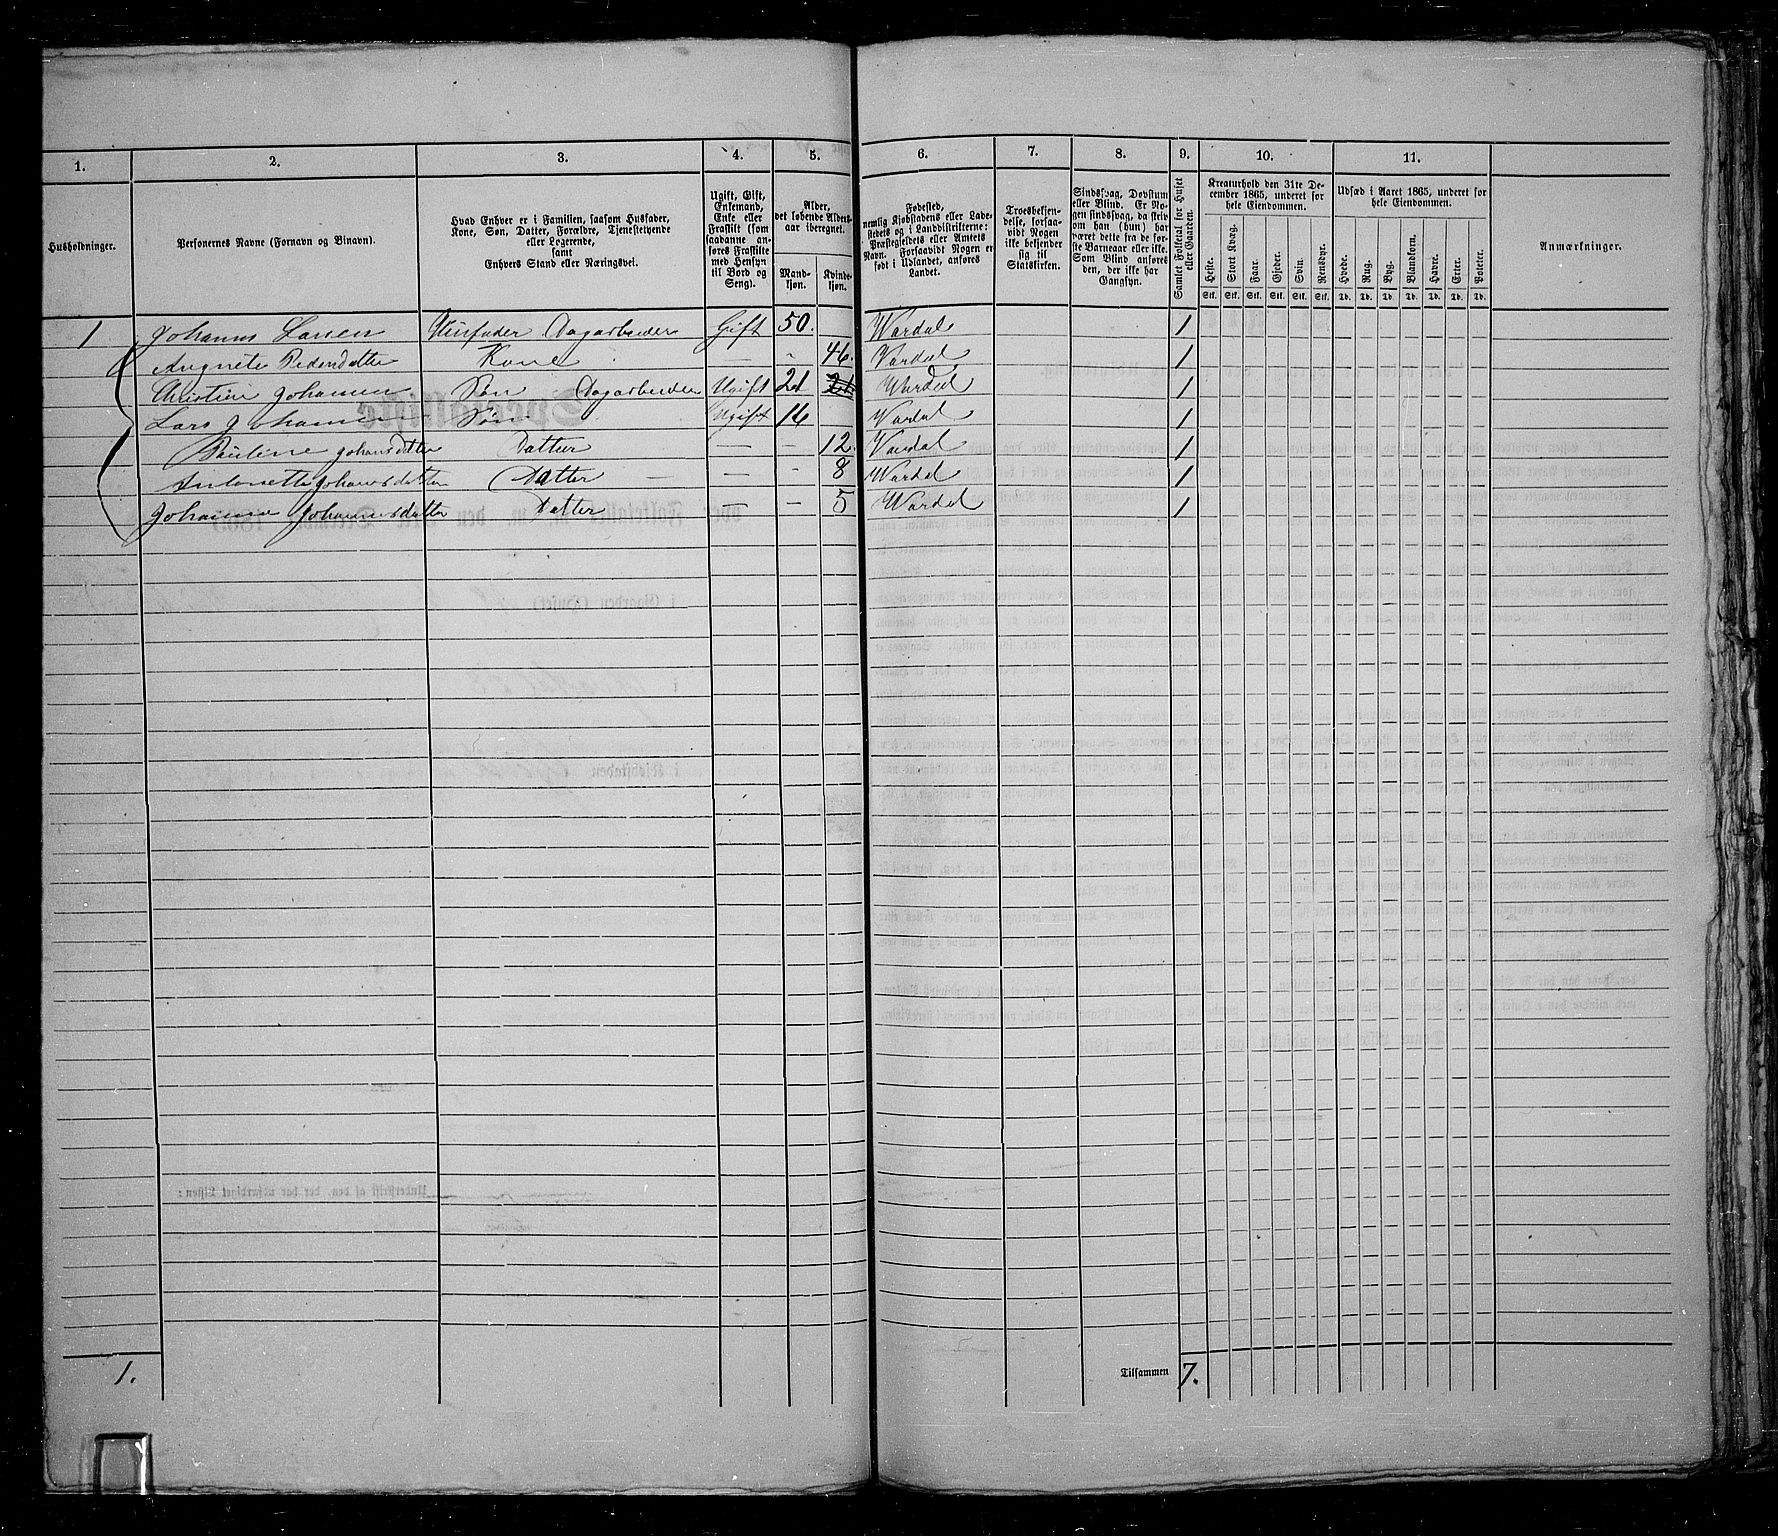 1. 2. 3. 4. 5. 6. 7. 8. 9. 10. 11.
Husholdninger.
Personernes Navne (Fornavn og Binavn).
Hvad Enhver er i Familien, saasom Husfader,
Kone, Søn, Datter, Forældre, Tjenestetyende
eller Logerende,
samt
Enhvers Stand eller Næringsvei.
Ugift, Gift,
Enkemand,
Enke eller
Fraskilt (som
saadanne an-
føres Fraskilte
med Hensyn
til Bord og
Seng).
Alder,
det løbende Alders-
aar iberegnet.
Mand-
kjøn.
Kvinde-
kjøn.
Fødested,
nemlig Kjøbstadens eller Lade-
stedets og i Landdistrikterne:
Præstegjeldets eller Amtets
Navn. Forsaavidt Nogen er
født i Udlandet, anføres
Landet.
Troesbekjen-
delse, forsaa-
vidt Nogen
ikke bekjender
sig til
Statskirken.
Sindssvag, Døvstum
eller Blind. Er No-
gen sindssvag, da skriv
om han (hun) har
været dette fra de før-
ste Barneaar eller ikke.
Som Blind anføres
den, der ikke har
Gangsyn.
Samlet Folketal for Huset
eller Gaarden.
Kreaturhold den 31te De-
cember 1865, underet for
hele Eiendommen.
Heste. Stort Kvæg. Faar. Gjeder. Svin. Rensdyr.
Stk. Stk. Stk. Stk. Stk. Stk.
Udsæd i Aaret 1865, underet for
hele Eiendommen.
Hvede. Rug. Byg. Blandkorn. Havre. Erter. Poteter.
Td. Td. Td. Td. Td. Td. Td.
Anmærkninger.
1 Johannes Larsen Husfader Dagarbeider Gift 50. Wardal 1
Angnete Pedersdatter Kone — - 46. Vardal 1
Christian Johansen Søn Dagarbeider Ugift 21 21 Wardal 1
Lars Johansen Søn Ugift 16 Vardal 1
Pauline Johansdatter Datter — — 12. Vardal 1
Antonette Johansdatter Datter — — - 8 Wardal 1
Johanne Johannesdatter Datter — — 5 Wardal 1
1. Tilsammen 7.